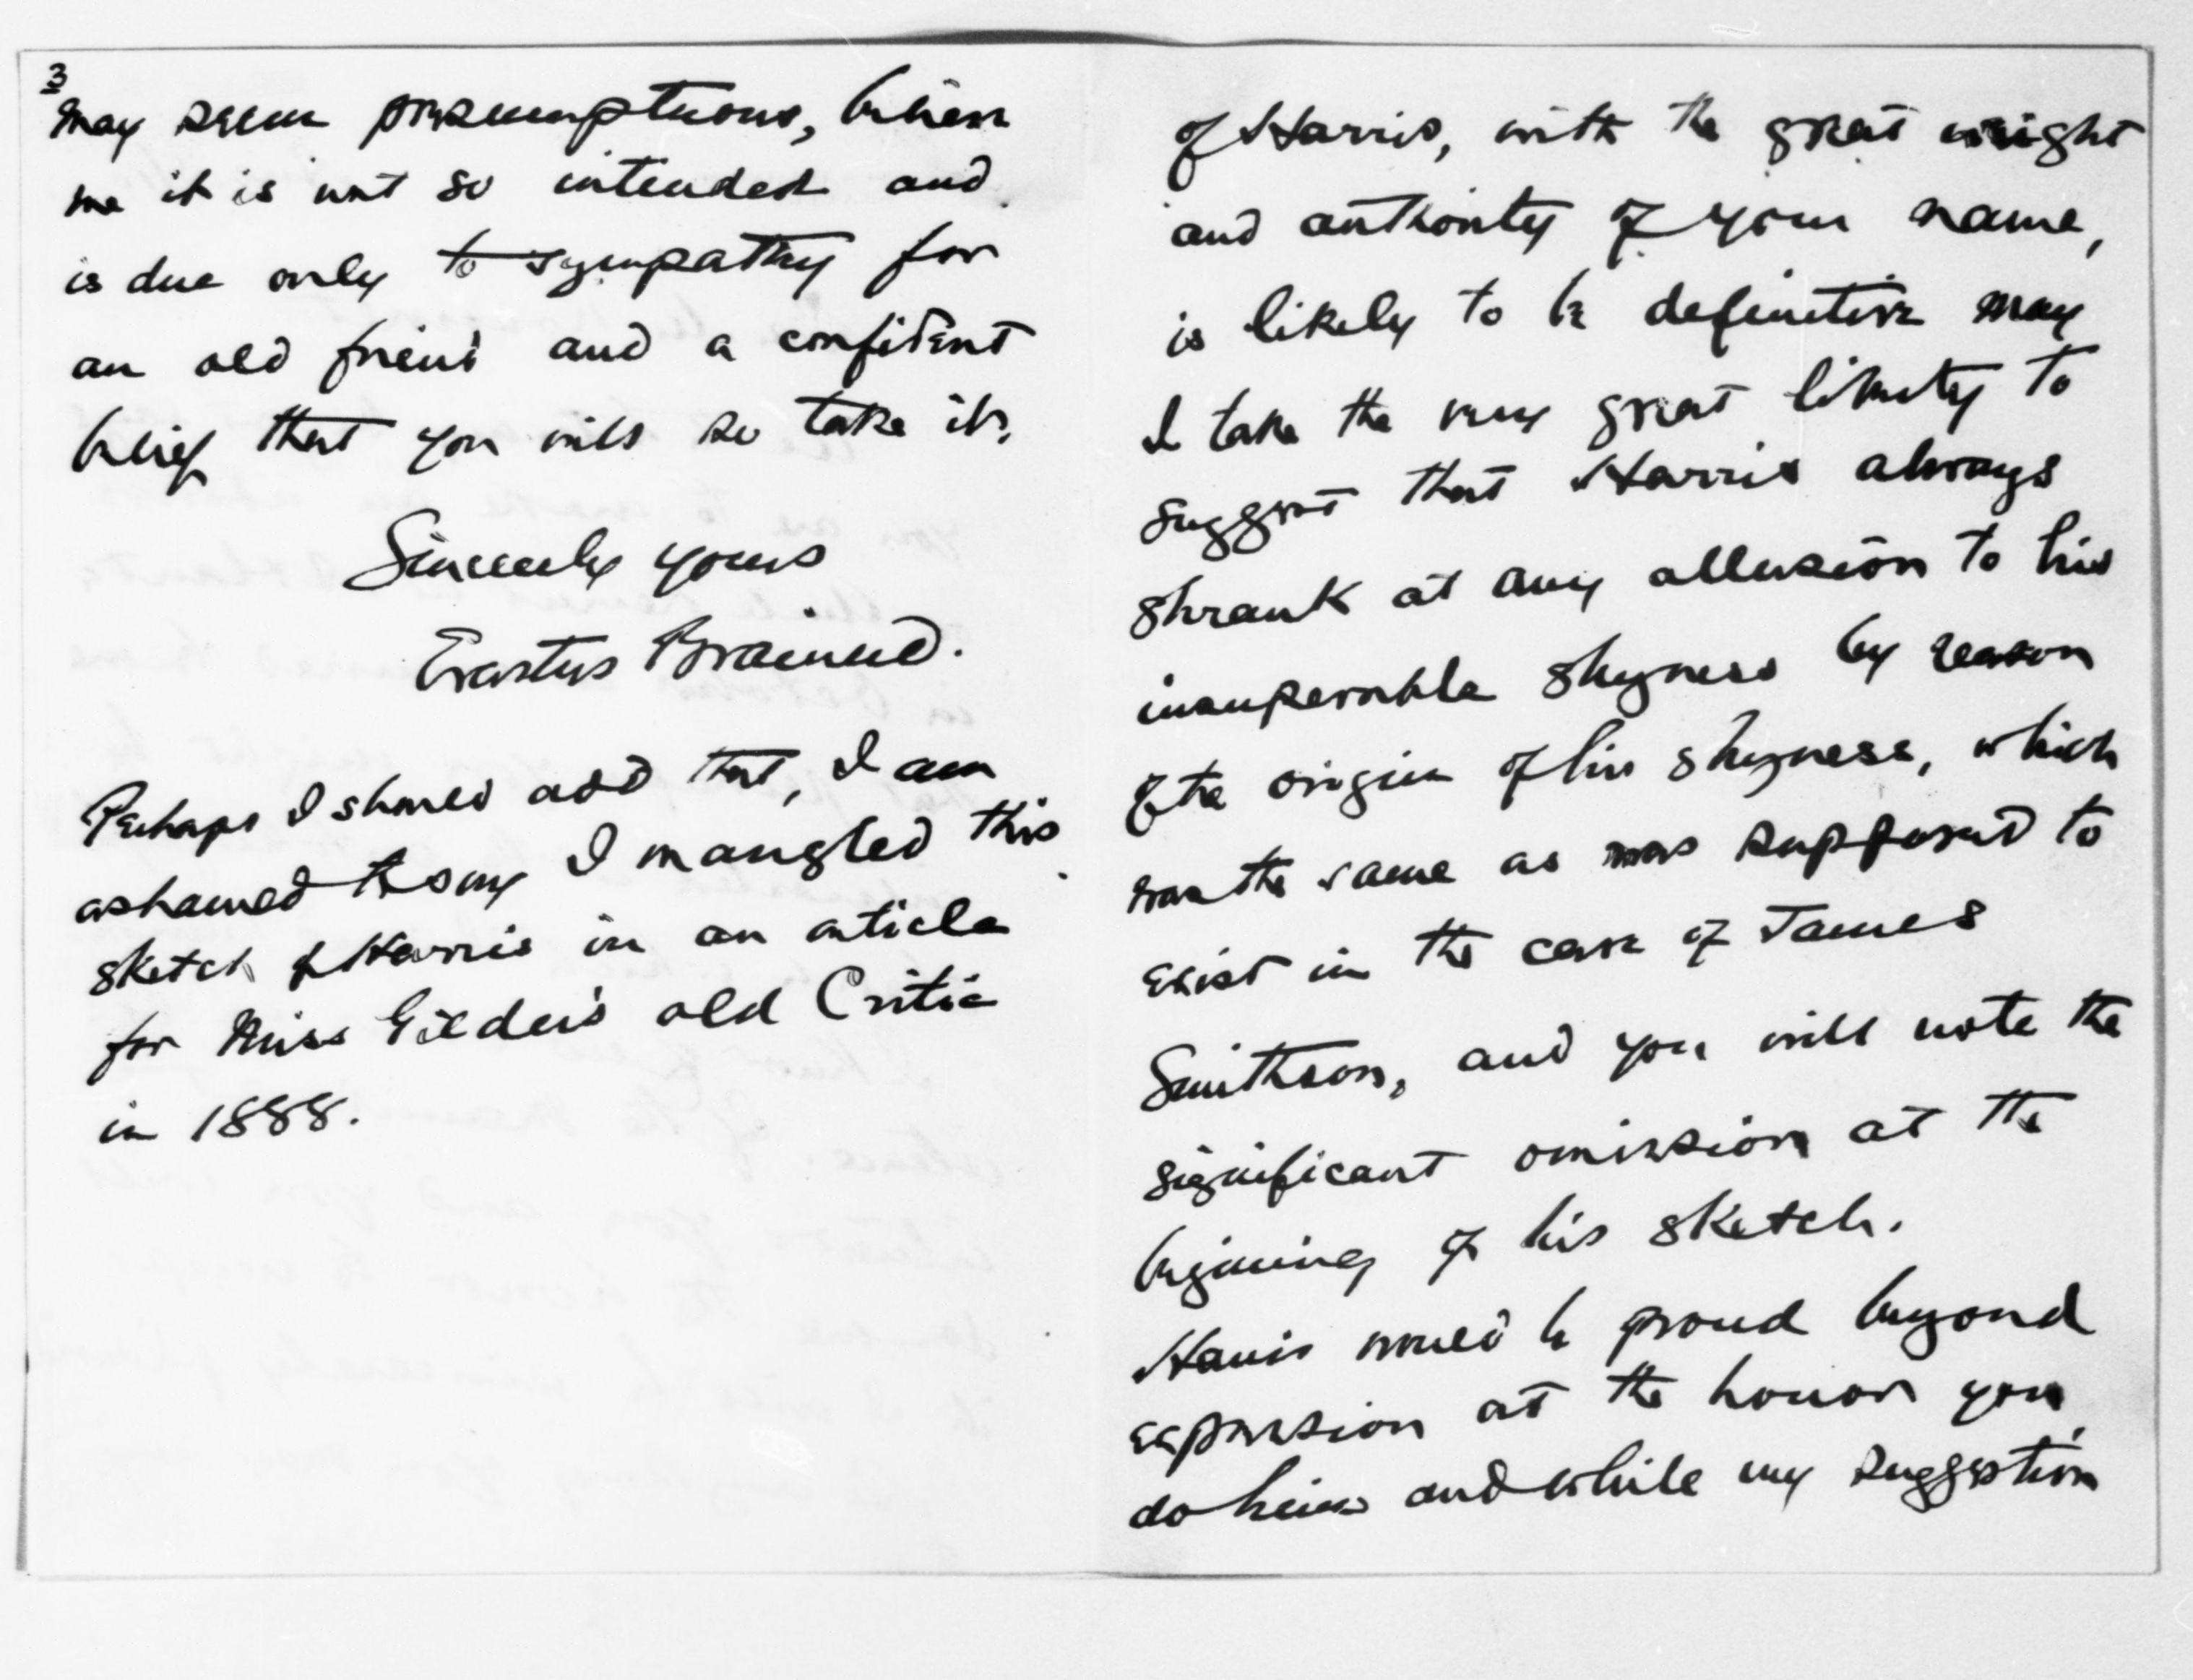 3
may seem presumptuous, believe
me it is not so intended and
is due only to sympathy for
an old friend and a confident
belief that you will so take it.
Sincerely yours
Erastus Brainerd.
Perhaps I should add that, I am
ashamed to say I mangled this
sketch of Harris in an article
for Miss Gilder's old Critic
in 1888.
of Harris, with the great weight
and authority of your name,
is likely to be definitive may
I take the very great liberty to
suggest that Harris always
shrank at any allusion to his
insuperable shyness by reason
of the origin of his shyness, which
was the same as was supposed to
exist in the case of James
Smithson, and you will note the
significant omission at the
begining of his sketch.
Harris would be proud beyond
expression at the honor you
do him and while my suggestion